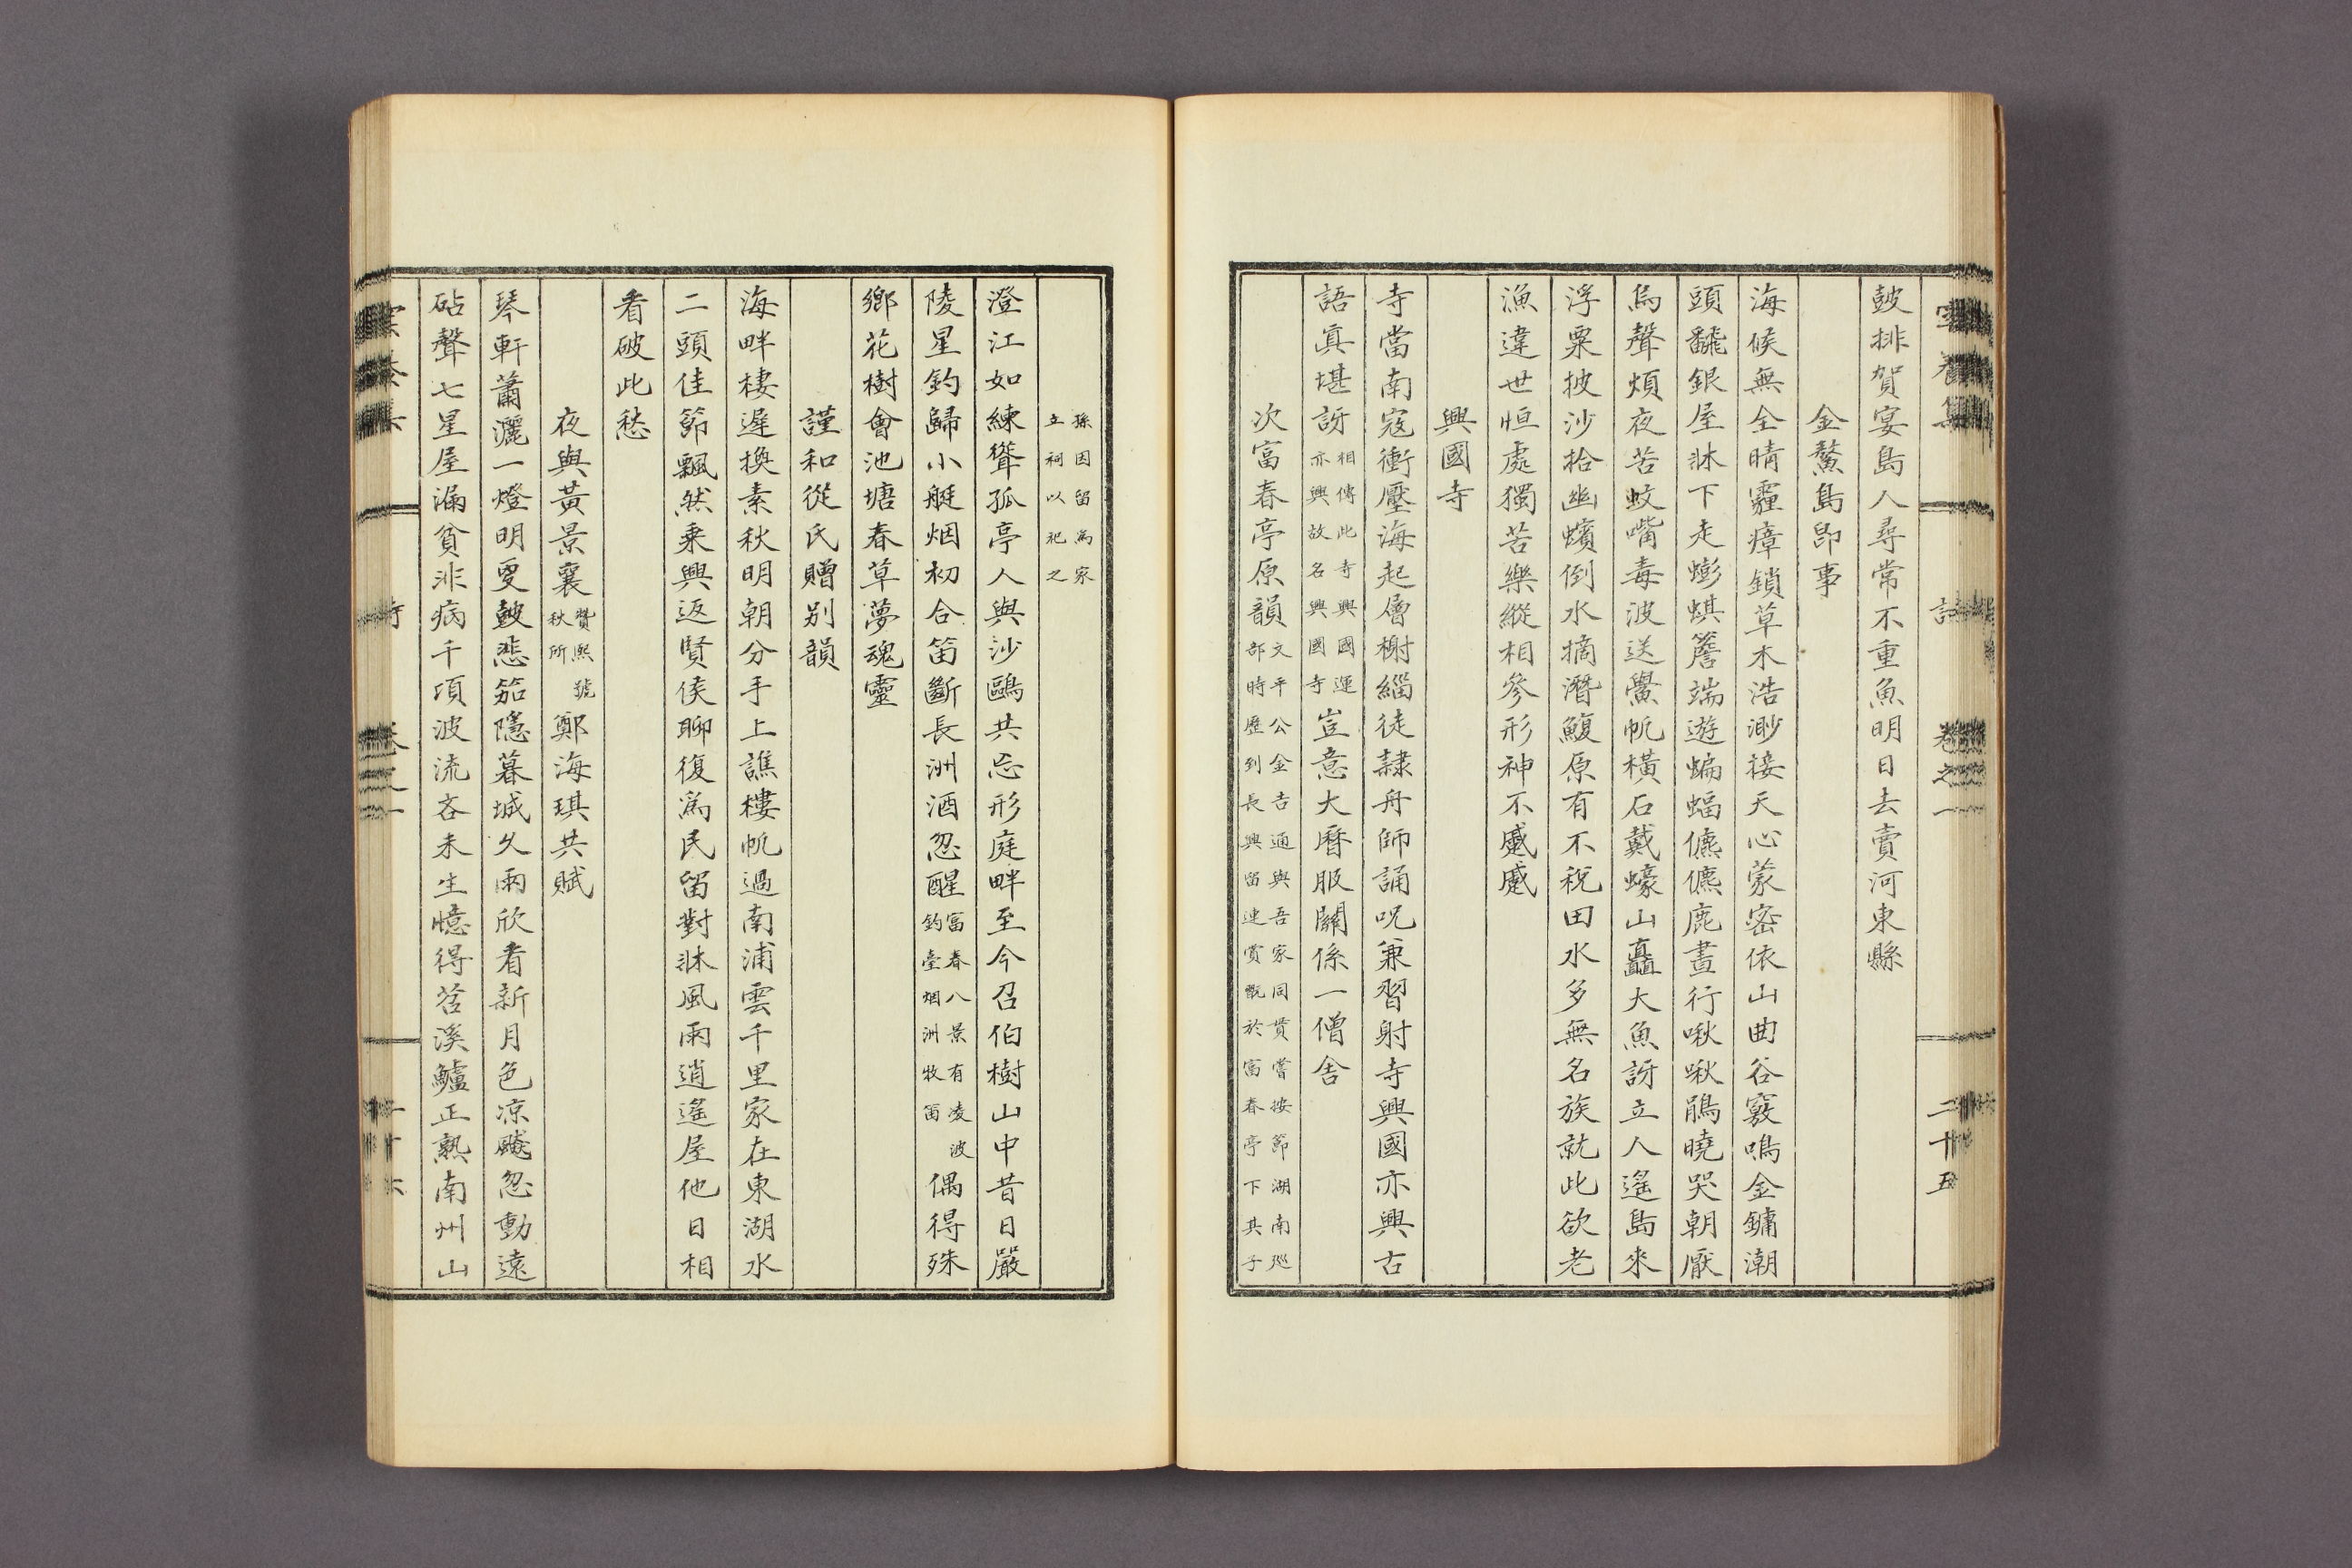 詩
卷之一
二十五
鼓排賀宴島人尋常不重魚明日去賣河東縣
金鰲島即事
海候無全晴霾瘴鎖草木浩渺接天心蒙密依山曲谷竅鳴金鏞潮
頭飜銀屋牀下走蟛蜞簷端遊蝙蝠儦儦鹿晝行啾啾鵑曉哭朝厭
烏聲煩夜苦蚊嘴毒波送鱟帆橫石戴蠔山矗大魚訝立人遙島來
浮粟披沙拾幽蠙倒水摘潛鰒原有不稅田水多無名族就此欲老
漁違世恒處獨苦樂縱相參形神不戚戚
興國寺
寺當南寇衝壓海起層榭緇徒隷舟師誦呪兼習射寺興國亦興古
語眞堪訝相傳此寺興國運亦興故名興國寺豈意大曆服關係一僧舍
次富春亭原韻文平公金吉通與吾家同貫嘗按節湖南巡部時歷到長興留連賞翫於富春亭下其子
孫因留爲家立祠以祀之
澄江如練聳孤亭人與沙鷗共忘形庭畔至今召伯樹山中昔日嚴
陵星釣歸小艇烟初合笛斷長洲酒忽醒富春八景有凌波釣臺烟洲牧笛偶得殊
鄉花樹會池塘春草夢魂靈
謹和從氏贈別韻
海畔棲遲換素秋明朝分手上譙樓帆過南浦雲千里家在東湖水
二頭佳節飄然乘興返賢侯聊復爲民留對牀風雨逍遙屋他日相
看破此愁
夜與黃景襄贊熙號秋所鄭海琪共賦
琴軒蕭灑一燈明更鼓悲笳隱暮城久雨欣看新月色凉飈忽動遠
砧聲七星屋漏貧非病千頃波流吝未生憶得苕溪鱸正熟南州山